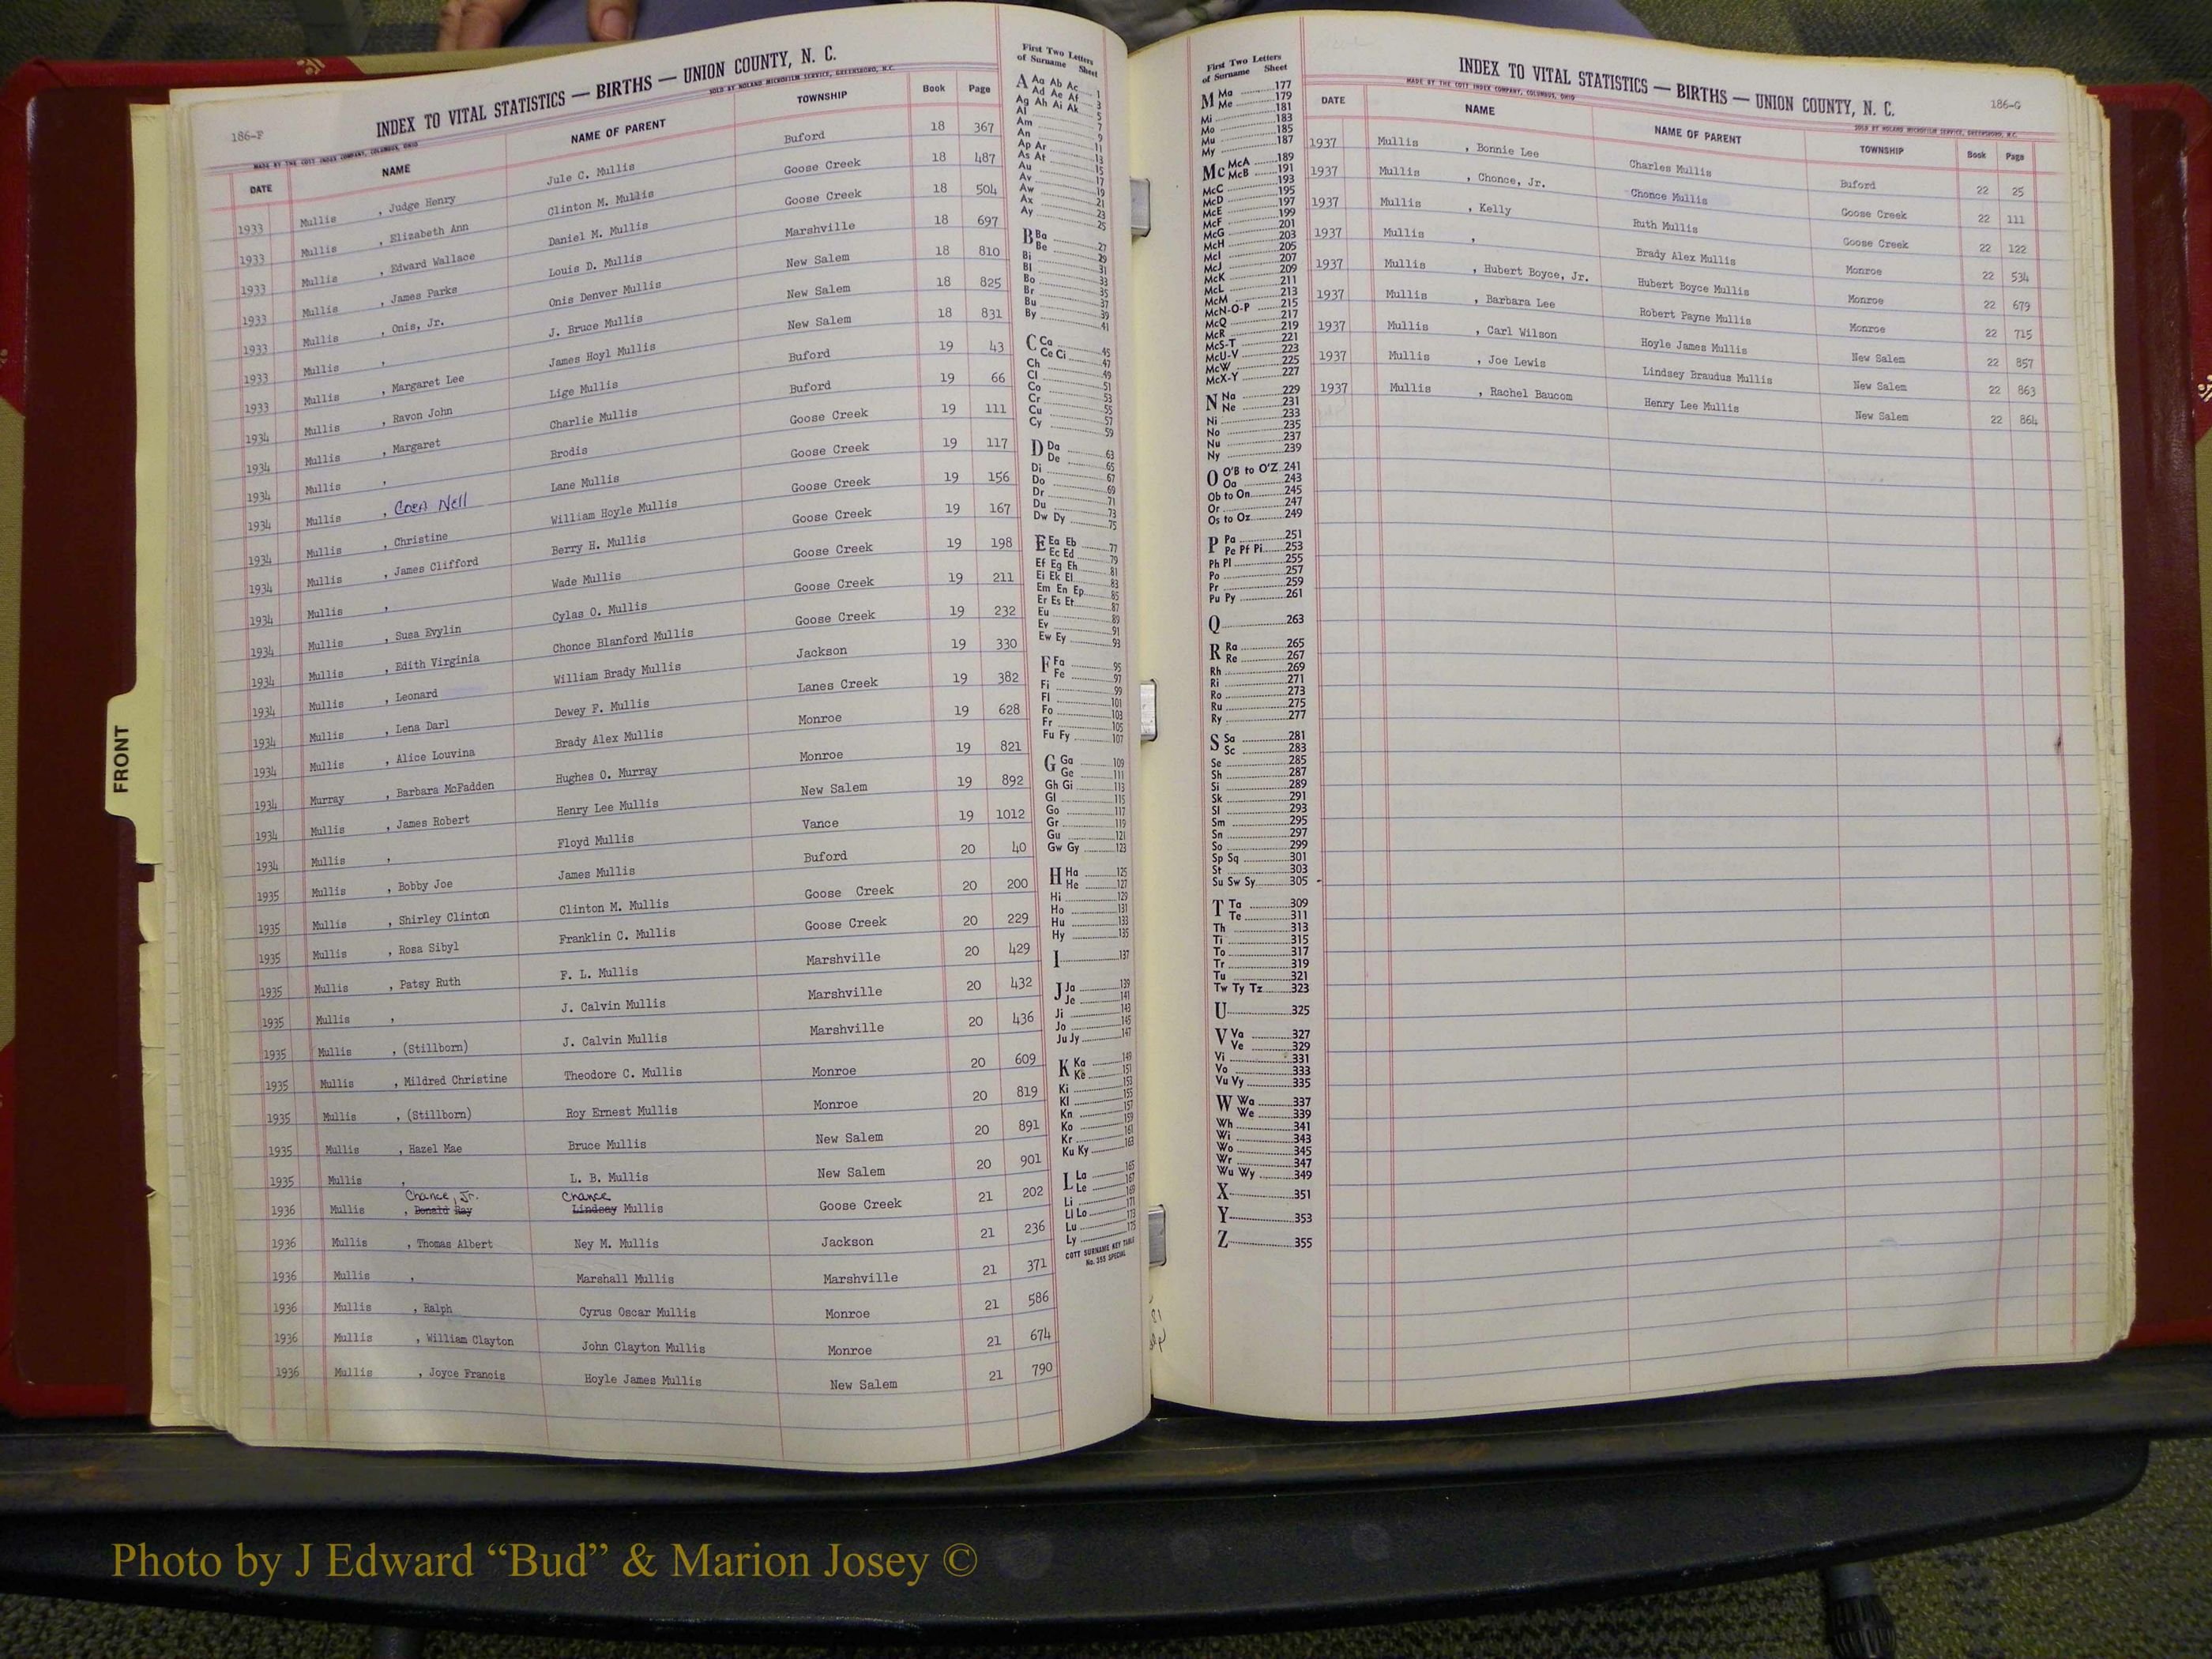 186-F
INDEX TO VITAL STATISTICS — BIRTHS — UNION COUNTY, N. C.
MADE BY THE COTT INDEX COMPANY, COLUMBUS, OHIO SOLD BY NOLAND MICROFILM SERVICE, GREENSBORO, N.C.
DATE NAME NAME OF PARENT TOWNSHIP Book Page
1933 Mullis , Judge Henry Jule C. Mullis Buford 18 367
1933 Mullis , Elizabeth Ann Clinton M. Mullis Goose Creek 18 487
1933 Mullis , Edward Wallace Daniel M. Mullis Goose Creek 18 504
1933 Mullis , James Parks Louis D. Mullis Marshville 18 697
1933 Mullis , Onis, Jr. Onis Denver Mullis New Salem 18 810
1933 Mullis , J. Bruce Mullis New Salem 18 825
1933 Mullis , Margaret Lee James Hoyl Mullis New Salem 18 831
1934 Mullis , Ravon John Lige Mullis Buford 19 43
1934 Mullis , Margaret Charlie Mullis Buford 19 66
1934 Mullis , Brodis Goose Creek 19 111
1934 Mullis , Coea Nell Lane Mullis Goose Creek 19 117
1934 Mullis , Christine William Hoyle Mullis Goose Creek 19 156
1934 Mullis , James Clifford Berry H. Mullis Goose Creek 19 167
1934 Mullis , Wade Mullis Goose Creek 19 198
1934 Mullis , Susa Evylin Cylas O. Mullis Goose Creek 19 211
1934 Mullis , Edith Virginia Chonce Blanford Mullis Goose Creek 19 232
1934 Mullis , Leonard William Brady Mullis Jackson 19 330
1934 Mullis , Lena Darl Dewey F. Mullis Lanes Creek 19 382
1934 Mullis , Alice Louvina Brady Alex Mullis Monroe 19 628
1934 Murray , Barbara McFadden Hughes O. Murray Monroe 19 821
1934 Mullis , James Robert Henry Lee Mullis New Salem 19 892
1934 Mullis , Floyd Mullis Vance 19 1012
1935 Mullis , Bobby Joe James Mullis Buford 20 40
1935 Mullis , Shirley Clinton Clinton M. Mullis Goose Creek 20 200
1935 Mullis , Rosa Sibyl Franklin C. Mullis Goose Creek 20 229
1935 Mullis , Patsy Ruth F. L. Mullis Marshville 20 429
1935 Mullis , J. Calvin Mullis Marshville 20 432
1935 Mullis , (Stillborn) J. Calvin Mullis Marshville 20 436
1935 Mullis , Mildred Christine Theodore C. Mullis Monroe 20 609
1935 Mullis , (Stillborn) Roy Ernest Mullis Monroe 20 819
1935 Mullis , Hazel Mae Bruce Mullis New Salem 20 891
1935 Mullis , L. B. Mullis New Salem 20 901
Chance, Jr. Chance
1936 Mullis , Donald Ray Lindsey Mullis Goose Creek 21 202
1936 Mullis , Thomas Albert Ney M. Mullis Jackson 21 236
1936 Mullis , Marshall Mullis Marshville 21 371
1936 Mullis , Ralph Cyrus Oscar Mullis Monroe 21 586
1936 Mullis , William Clayton John Clayton Mullis Monroe 21 674
1936 Mullis , Joyce Francis Hoyle James Mullis New Salem 21 790
FRONT
First Two Letters
of Surname Sheet
A Aa Ab Ac 1
Ad Ae Af 3
Ag Ah Ai Ak 5
Al 7
Am 9
An 11
Ap Ar 13
As At 15
Au 17
Av 19
Aw 21
Ax 23
Ay 25
B Ba 27
Be 29
Bi 31
Bl 33
Bo 35
Br 37
Bu 39
By 41
C Ca 45
Ce Ci 47
Ch 49
Cl 51
Co 53
Cr 55
Cu 57
Cy 59
D Da 63
De 65
Di 67
Do 69
Dr 71
Du 73
Dw Dy 75
E Ea Eb 77
Ec Ed 79
Ef Eg Eh 81
Ei Ek El 83
Em En Ep 85
Er Es Et 87
Eu 89
Ev 91
Ew Ey 93
F Fa 95
Fe 97
Fi 99
Fl 101
Fo 103
Fr 105
Fu Fy 107
G Ga 109
Ge 111
Gh Gi 113
Gl 115
Go 117
Gr 119
Gu 121
Gw Gy 123
H Ha 125
He 127
Hi 129
Ho 131
Hu 133
Hy 135
I 137
J Ja 139
Je 141
Ji 143
Jo 145
Ju Jy 147
K Ka 149
Ke 151
Ki 153
Kl 155
Kn 157
Ko 159
Kr 161
Ku Ky 163
L La 165
Le 167
Li 169
Ll Lo 171
Lu 173
Ly 175
COTT SURNAME KEY TABLE
No. 355 SPECIAL
First Two Letters
of Surname Sheet
M Ma 177
Me 179
Mi 181
Mo 183
Mu 185
My 187
Mc McA 189
McB 191
McC 193
McD 195
McE 197
McF 199
McG 201
McH 203
McI 205
McJ 207
McK 209
McL 211
McM 213
McN-O-P 215
McQ 217
McR 219
McS-T 221
McU-V 223
McW 225
McX-Y 227
N Na 229
Ne 231
Ni 233
No 235
Nu 237
Ny 239
O O'B to O'Z 241
Oa 243
Ob to On 245
Or 247
Os to Oz 249
P Pa 251
Pe Pf Pi 253
Ph Pl 255
Po 257
Pr 259
Pu Py 261
Q 263
R Ra 265
Re 267
Rh 269
Ri 271
Ro 273
Ru 275
Ry 277
S Sa 281
Sc 283
Se 285
Sh 287
Si 289
Sk 291
Sl 293
Sm 295
Sn 297
So 299
Sp Sq 301
St 303
Su Sw Sy 305
T Ta 309
Te 311
Th 313
Ti 315
To 317
Tr 319
Tu 321
Tw Ty Tz 323
U 325
V Va 327
Ve 329
Vi 331
Vo 333
Vu Vy 335
W Wa 337
We 339
Wh 341
Wi 343
Wo 345
Wr 347
Wu Wy 349
X 351
Y 353
Z 355
INDEX TO VITAL STATISTICS — BIRTHS — UNION COUNTY, N. C.
186-G
MADE BY THE COTT INDEX COMPANY, COLUMBUS, OHIO SOLD BY NOLAND MICROFILM SERVICE, GREENSBORO, N.C.
DATE NAME NAME OF PARENT TOWNSHIP Book Page
1937 Mullis , Bonnie Lee Charles Mullis Buford 22 25
1937 Mullis , Chonce, Jr. Chonce Mullis Goose Creek 22 111
1937 Mullis , Kelly Ruth Mullis Goose Creek 22 122
1937 Mullis , Brady Alex Mullis Monroe 22 534
1937 Mullis , Hubert Boyce, Jr. Hubert Boyce Mullis Monroe 22 679
1937 Mullis , Barbara Lee Robert Payne Mullis Monroe 22 715
1937 Mullis , Carl Wilson Hoyle James Mullis New Salem 22 857
1937 Mullis , Joe Lewis Lindsey Braudus Mullis New Salem 22 863
1937 Mullis , Rachel Baucom Henry Lee Mullis New Salem 22 864
Photo by J Edward “Bud” & Marion Josey ©